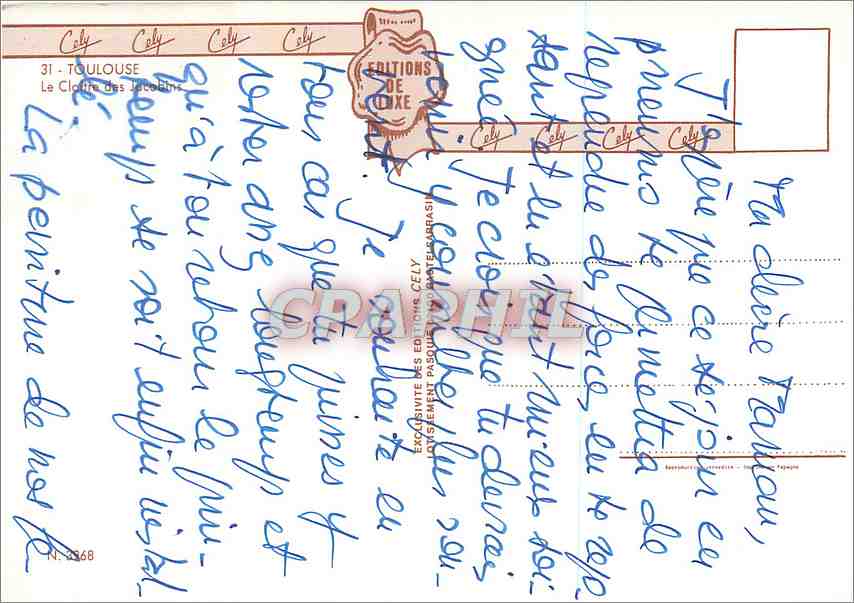 Cely Cely Cely Cely
31 - TOULOUSE
Le Cloître des Jacobins
EDITIONS
DE
LUXE
Cely Cely Cely Cely
EXCLUSIVITE DES EDITIONS CELY
LOTISSEMENT PASQUIE CASTELSARRASIN
Reproduction interdite - Imprimé en Espagne
N. 3368
CPARPHIL
Ma chère Maman,
J'espère que ce séjour en
pneumo te permettra de
reprendre des forces en te repo
sant et en étant mieux soi-
gnée. Je crois que tu devrais
venir y con plus sou-
vent. Je souhaite en
tous cas que tu puisses y
rester assez longtemps et
qu'à ton retour le prin-
temps se soit enfin instal-
lé.
La peinture de nos